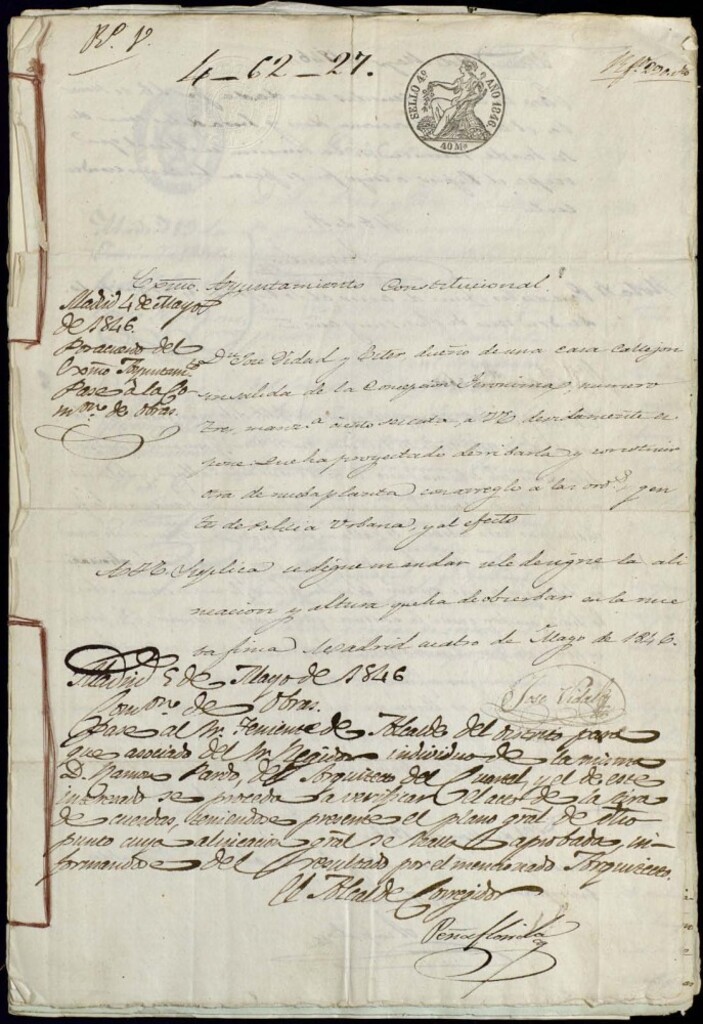 4-62-27.
SELLO 4º AÑO 1846.
40 Ms.
Excmo. Ayuntamiento Constitucional.
Madrid 4 de Mayo
de 1846.
Por acuerdo del
Excmo Ayuntamto
Pase à la Co-
mon. de obras.
Dn. José Vidal y dueño de una casa Callejon
sin salida de la Concepcion Geronima, numero
tre, manz.a ciento sesenta, a VE. devidamente es
pone: Que ha proyectado derribarla y construir
otra de nueba planta con arreglo a las ords.
de Policia Urbana, y al efecto
A VE. Suplica se digne mandar se le designe la ali
neacion y altura que ha de obserbar en la nue
ba finca. Madrid cuatro de Mayo de 1846.
José Vidal
Madrid 5 de Mayo de 1846
Comon. de Obras.
Pase al Sr. Teniente de Alcalde del distrito para
que asociado del Sr. Regidor individuo de la misma
D. Ramon Pardo, del Arquitecto del Cuartel, y el de este
interesado se proceda a verificar el acto de la tira
de cuerdas, teniendo presente el plano gral de dho
punto cuya alineacion gral se halla aprobada, in-
formandose del resultado por el mencionado Arquitecto.
El Alcalde Corregidor
Peñaflorida